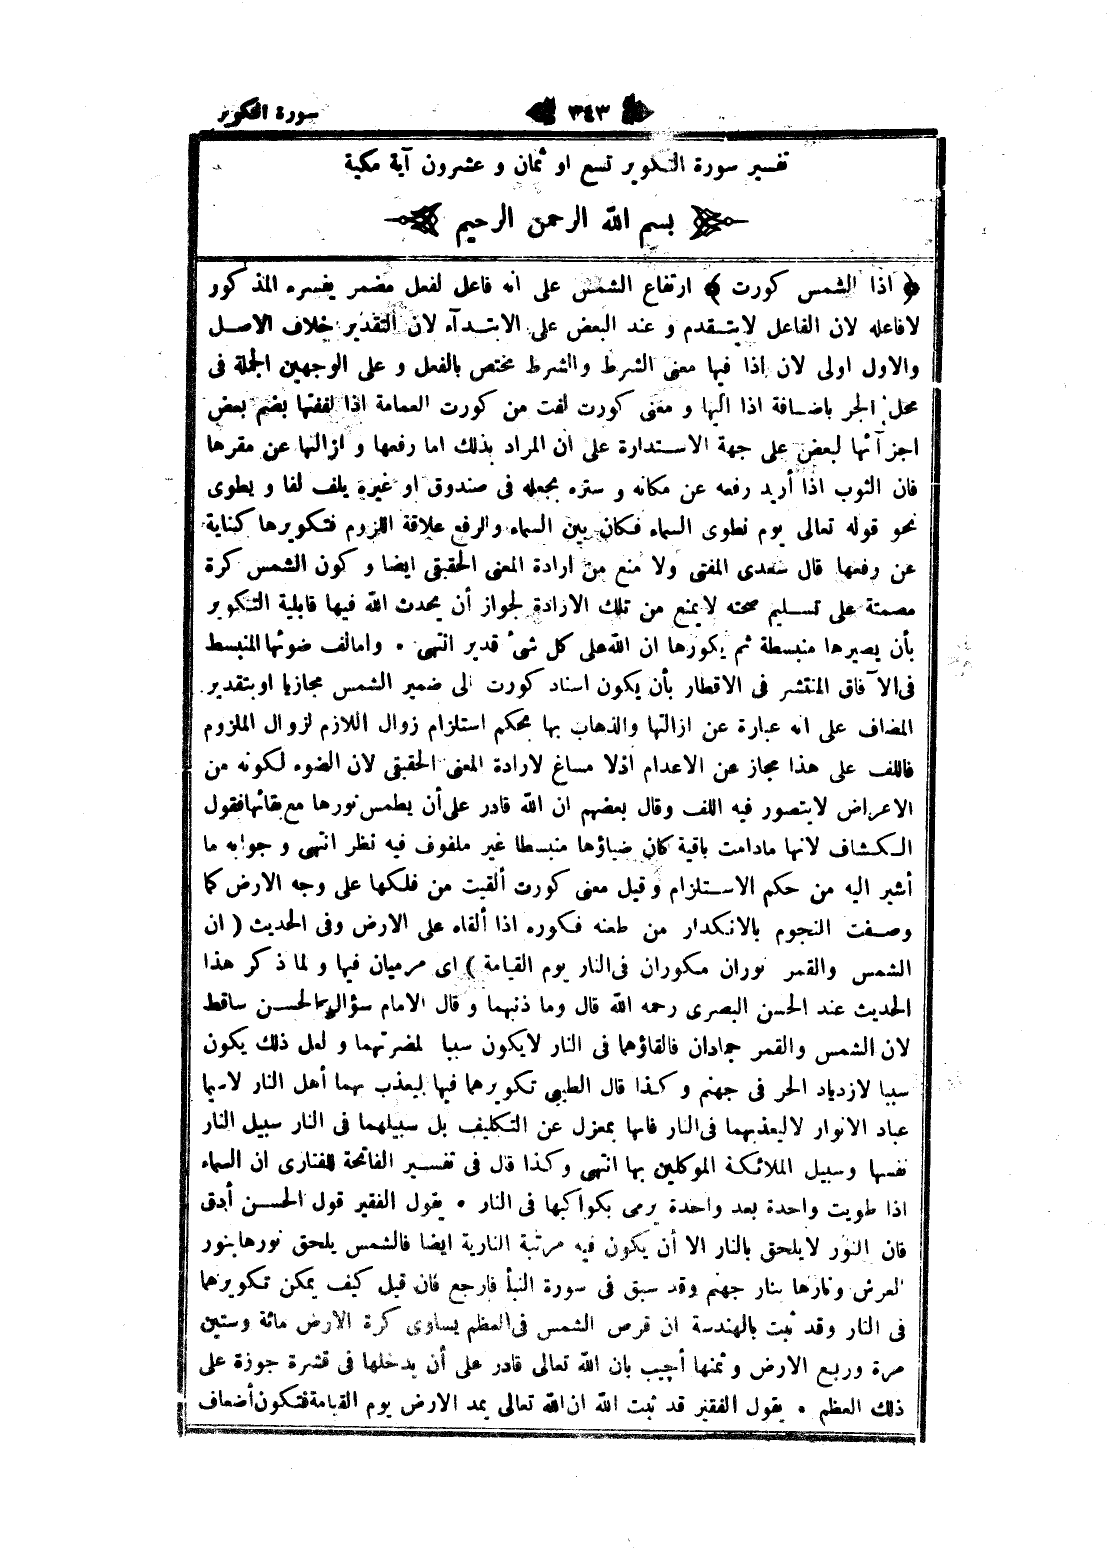 سورة التكوير
٣٤٣
تفسير سورة التكوير تسع او ثمان و عشرون آية مكية
بسم الله الرحمن الرحيم
﴿ اذا الشمس كورت ﴾ ارتفاع الشمس على انه فاعل لفعل مضمر يفسره المذكور
لافاعله لان الفاعل لايتقدم و عند البعض على الابتدآء لان التقدير خلاف الاصل
والاول اولى لان اذا فيها معنى الشرط والشرط مختص بالفعل و على الوجهين الجملة فى
محل الجر باضافة اذا اليها و معنى كورت لفت من كورت العمامة اذا لففتها بضم بعض
اجزآئها لبعض على جهة الاستدارة على ان المراد بذلك اما رفعها و ازالتها عن مقرها
فان الثوب اذا أريد رفعه عن مكانه و ستره بجعله فى صندوق او غيره يلف لفا و يطوى
نحو قوله تعالى يوم نطوى السماء فكان بين السماء والرفع علاقة اللزوم فتكويرها كناية
عن رفعها قال سعدى المفتى ولا منع من ارادة المعنى الحقيقى ايضا و كون الشمس كرة
مصمتة على تسليم صحته لايمنع من تلك الارادة لجواز أن يحدث الله فيها قابلية التكوير
بأن يصيرها منبسطة ثم يكورها ان الله على كل شئ قدير انتهى • وامالف ضوئها المنبسط
فى الآفاق المنتشر فى الاقطار بأن يكون اسناد كورت الى ضمير الشمس مجازيا اوبتقدير
المضاف على انه عبارة عن ازالتها والذهاب بها بحكم استلزام زوال اللازم لزوال الملزوم
فاللف على هذا مجاز عن الاعدام اذلا مساغ لارادة المعنى الحقيقى لان الضوء لكونه من
الاعراض لايتصور فيه اللف وقال بعضهم ان الله قادر على أن يطمس نورها مع بقائها فقول
الكشاف لانها مادامت باقية كان ضياؤها منبسطا غير ملفوف فيه نظر انتهى و جوابه ما
أشير اليه من حكم الاستلزام وقيل معنى كورت ألقيت من فلكها على وجه الارض كما
وصفت النجوم بالانكدار من طعنه فكوره اذا ألقاه على الارض وفى الحديث ( ان
الشمس والقمر نوران مكوران فى النار يوم القيامة ) اى مرميان فيها و لما ذكر هذا
الحديث عند الحسن البصرى رحمه الله قال وما ذنبهما و قال الامام سؤال الحسن ساقط
لان الشمس والقمر جمادان فالقاؤهما فى النار لايكون سببا لمضرتهما و لعل ذلك يكون
سببا لازدياد الحر فى جهنم و كذا قال الطيبى تكويرهما فيها ليعذب بهما أهل النار لاسيما
عباد الانوار لاليعذبهما فى النار فانهما بمعزل عن التكليف بل سبيلهما فى النار سبيل النار
نفسها وسبيل الملائكة الموكلين بها انتهى وكذا قال فى تفسير الفاتحة للفنارى ان السماء
اذا طويت واحدة بعد واحدة يرمى بكواكبها فى النار • يقول الفقير قول الحسن أدق
فان النور لايلحق بالنار الا أن يكون فيه مرتبة النارية ايضا فالشمس يلحق نورها بنور
العرش ونارها بنار جهنم وقد سبق فى سورة النبأ فارجع فان قيل كيف يمكن تكويرهما
فى النار وقد ثبت بالهندسة ان قرص الشمس فى العظم يساوى كرة الارض مائة وستين
مرة وربع الارض وثمنها أجيب بان الله تعالى قادر على أن يدخلها فى قشرة جوزة على
ذلك العظم • يقول الفقير قد ثبت الله ان الله تعالى يمد الارض يوم القيامة فتكون أضعاف